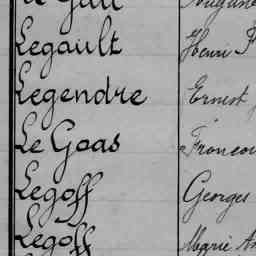 Legault Henri F
Legendre Ernest
Le Goas
Legoff Georges
Legoff Marie An